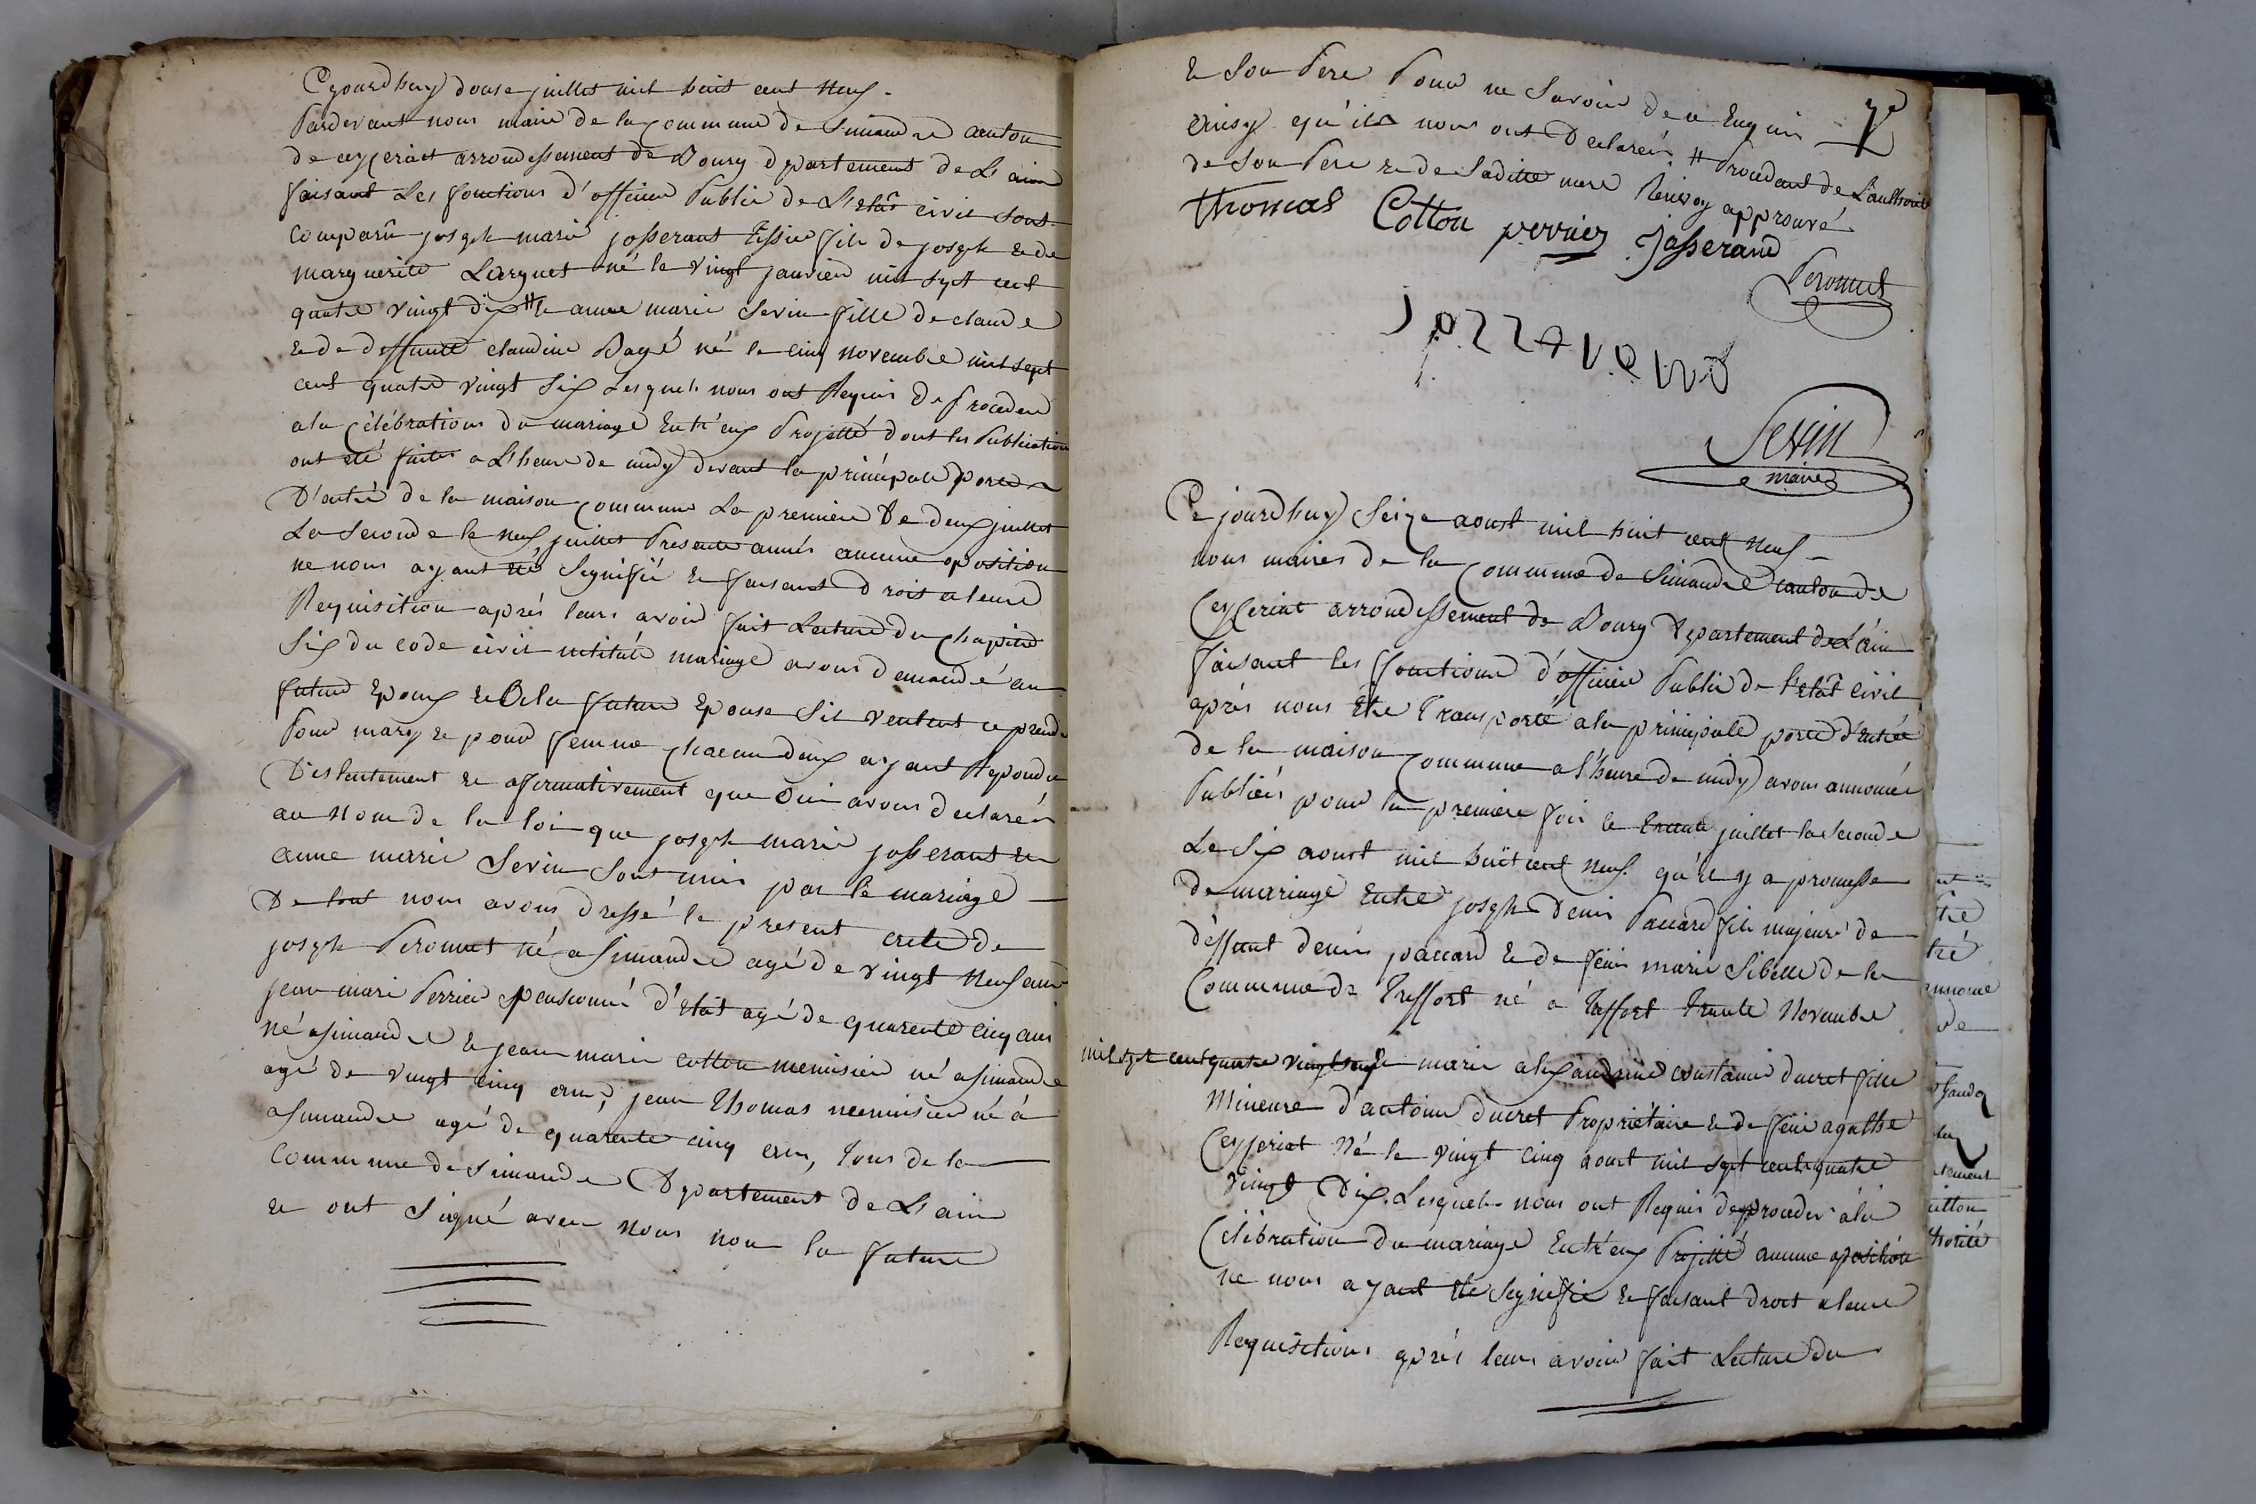 Cejourdhuy douse juillet mil huit cent neuf.
Pardevant nous maire de la commune de Simandre canton
de ceyzeriat arrondissement de Bourg departement de L'ain
faisant Les fonctions d'officier Public de L'etat civil sont
comparû joseph marie josserant tissier fils de joseph et de
marguerite né le vingt janvier mil sept cent
quatre vingt dix # et anne marie Sevin fille de claude
et de deffunte claudine Bagé né le cinq novembre mil sept
cent quatre vingt six Lesquels nous ont Requis de proceder
a la célébrations du mariage Entr'eux Projetté dont les Publications
ont eté faites a L'heure de midy devant la principale porte
D'entré de la maison commune La premiere le deux juillet
La seconde le neuf juillet Presente année aucune opositions
ne nous ayant été signifié et faisant droit a leure
Requisition aprés leurs avoir fait Lecture du chapitre
Six du code civil intitulé mariage avons demandé au
futur Epoux et a la future Epouse s'il veulent ce prendre
Pour mary et pour femme chacun deux ayant Repondu
Distentement et affirmativement que Oui avons declarés
au nom de la loi que joseph marie josserant et
anne marie Sevin sont unis par le mariage
De tout nous avons dressé le present acte de
joseph Peromet né a simandre agé de vingt neuf ans
jean marie Perrier pensionné d'Etat agé de quarente cinq ans
né a simandre et jean marie cotton menuisier né a simandre
agé de vingt cinq ans, jean Thomas menuisier né á
simandre agé de quarente cinq ans, tous de la
commune de simandre Departement de L'ain
et ont signé avec nous non la future
et son Pere Pour ne savoir de ce Enquis
ainsy qu'ils nous ont Declarés. # Procedant de L'authorité
de son Pere et de saditte mere Renvoy approuvé
7e
Thomas Cotton perrier Josserand
Peromet
josserand
Sevin
maire
Ce jourdhuy Seize aoust mil huit cent neuf
nous maires de la commune de Simandre canton de
Ceyzeriat arrondissement de Bourg Departement de L'áin
faisant les fonctions d'officier Public de l'etat civil
aprés nous Etre Transporté a la principale porte d'Entrée
de la maison commune a l'heure de midy avons annoncés
Publiés pour la premiere fois le trente juillet la seconde
Le six aoust mil huit cent neuf. qu'il y a promesse
de mariage Entre joseph Denis Paccard fils majeure de
déffunt denis paccard et de feüe marie Sibelle de la
Commune de Treffort né a Treffort trente Novembre
mil sept cent quatre vingt et marie alexandrine constance ducret fille
Mineure d'antoine ducret Propriétaire et de feüe agathe
Ceyseriat Né le vingt cinq aoust mil sept cent quatre
Vingt Dix. Lesquels nous ont Requis de proceder à la
Célébration du mariage Entr'eux Projetté aucune oposition
ne nous ayant été signifié et faisant droit a leure
Requisitions aprés leurs avoir fait Lecture du